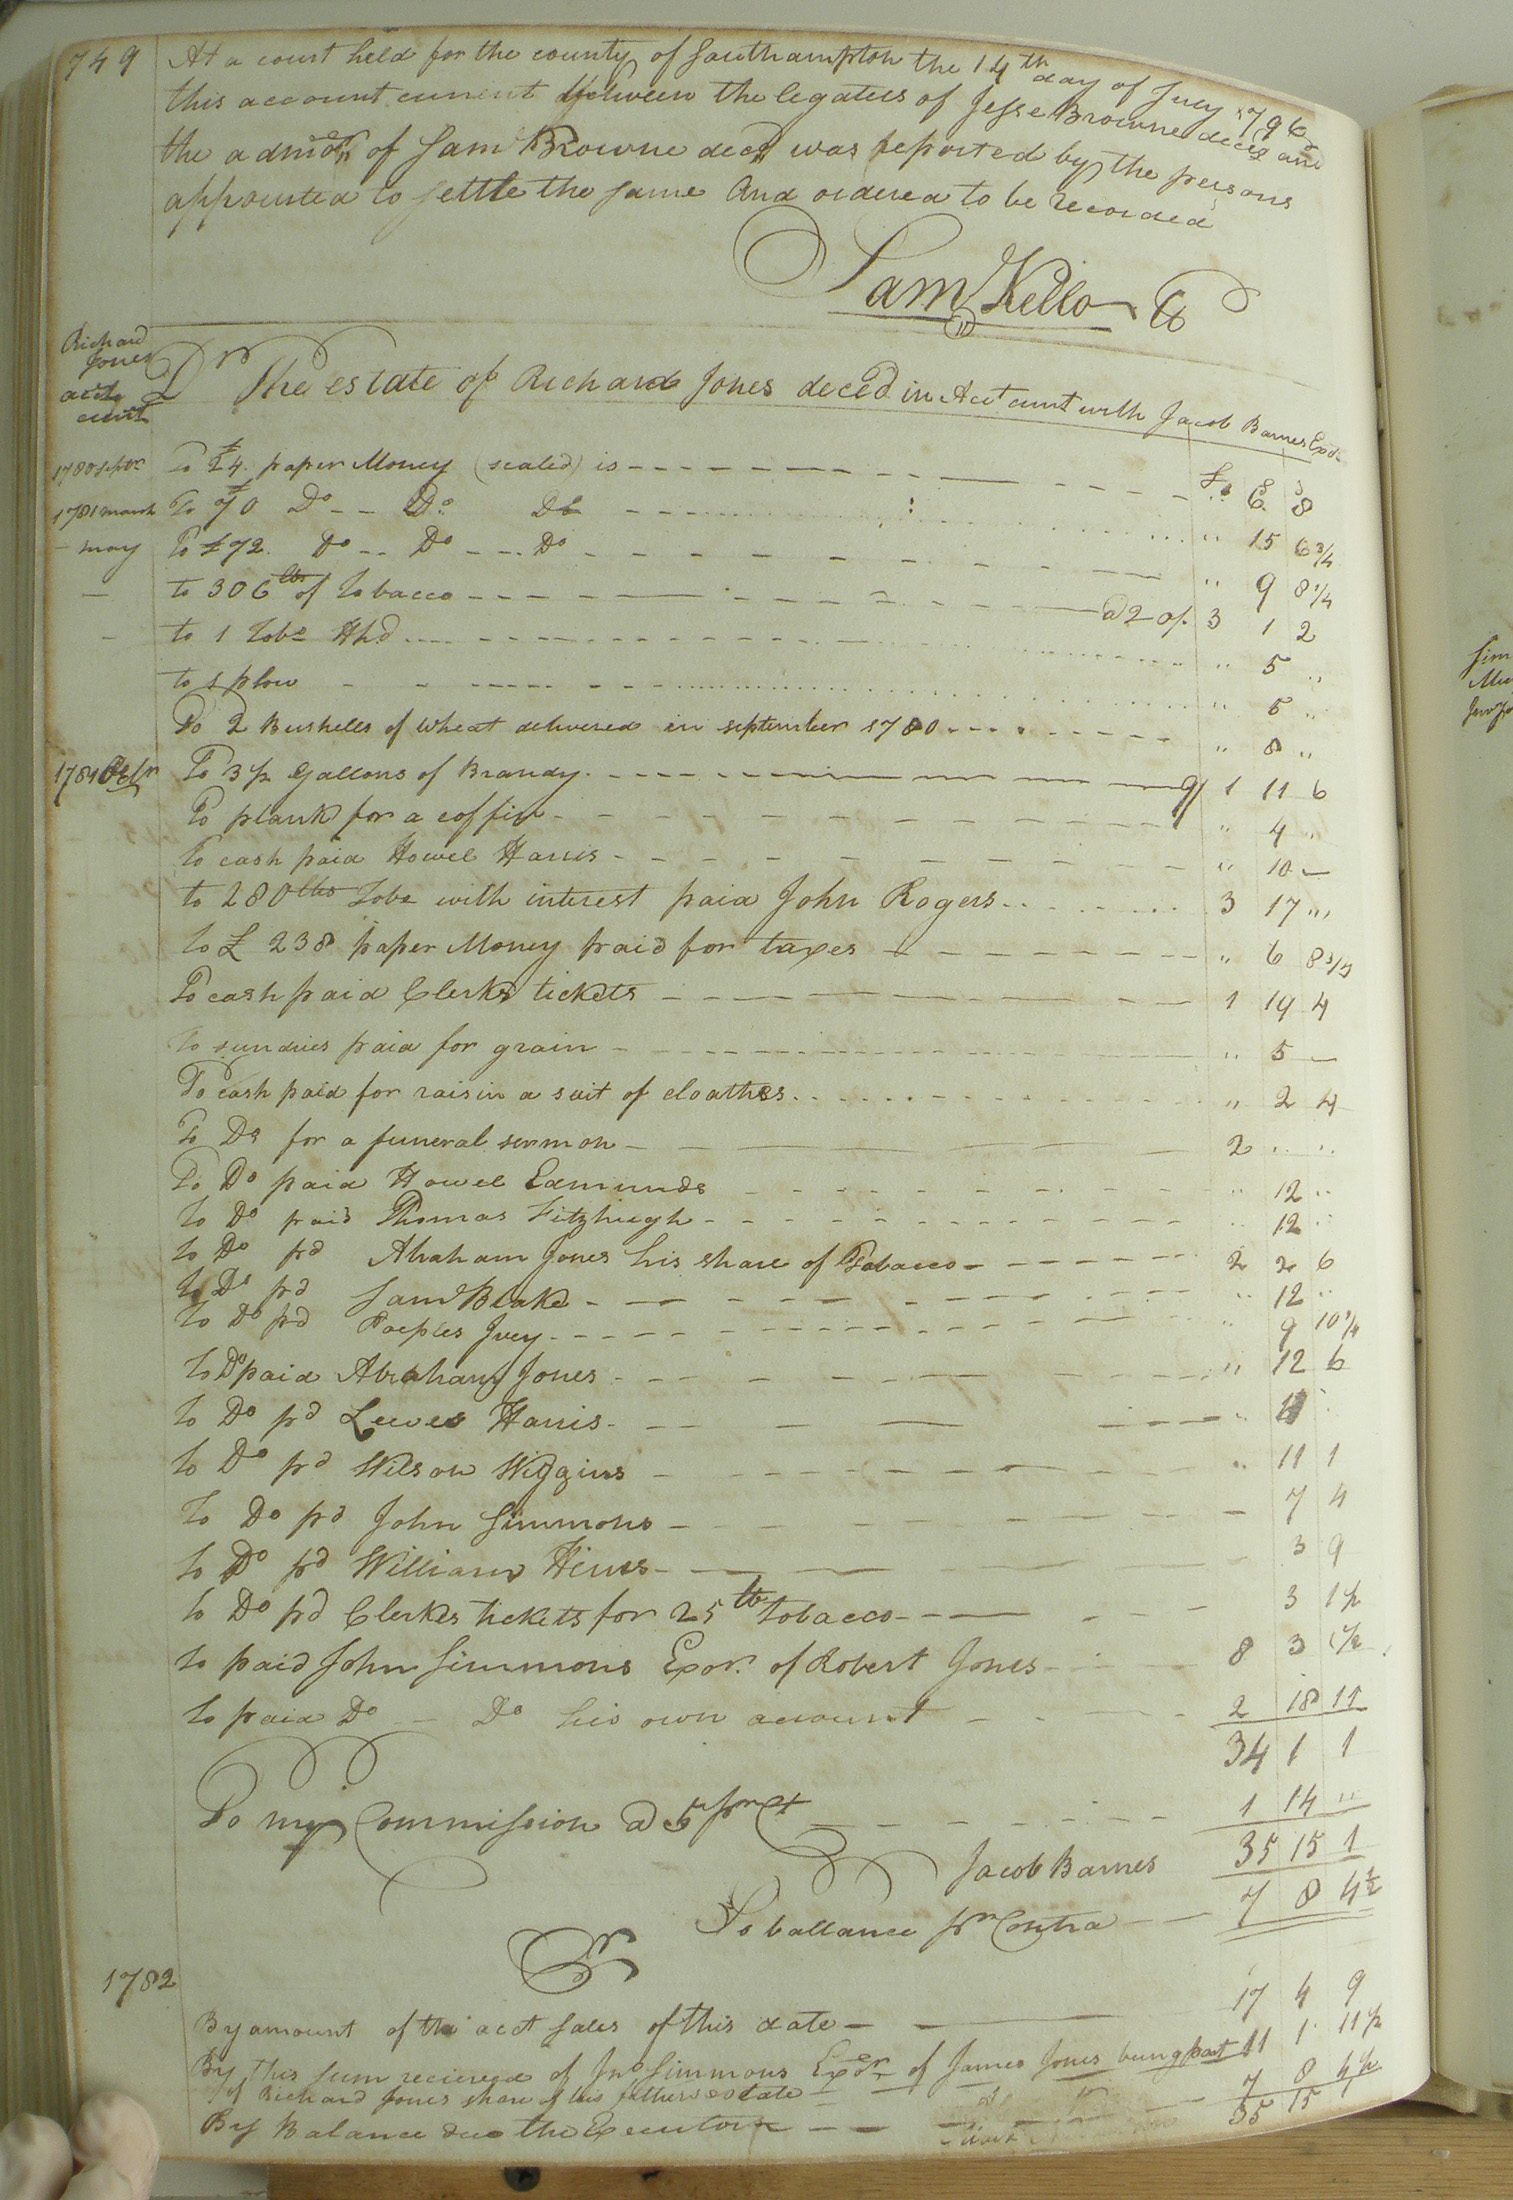 749 At a court held for the county of Southampton the 14th day of July 1796
this account current between the legatees of Jesse Browne deced and
the admor of Sam Browne deced was reported by the persons
appointed to settle the same And ordered to be recorded
Saml Kello Cl
Richard Jones acct curt
Dr The estate of Richard Jones deced in Acct curnt with Jacob Barnes Exor
1780 Septr To £24. paper Money (scaled) is £.. 6. 8
1781 march To £70 Do Do Do " 15 6 3/4
- may To £72. Do Do Do " 9 8 1/4
- to 306 lbs of Tobacco @ 20/. 3 1 2
- to 1 Tobo Hhd " 5 "
to 1 plow " 5 "
To 2 Bushells of Wheat delivered in september 1780 " 8 "
1781 Octr To 3 1/2 Gallons of Brandy 9/ 1 11 6
To plank for a coffin " 4 "
To cash paid Howel Harris " 10 -
to 280 lbs Tobo with interest paid John Rogers 3 17 "
to £ 238 paper Money paid for taxes " 6 8 3/4
To cash paid Clerks tickets 1 19 4
To sundries paid for grain " 5 -
To cash paid for raisin a suit of cloathes " 2 4
To Do for a funeral sermon 2 " "
To Do paid Howel Edmunds " 12 "
to Do paid Thomas Fitzhugh " 12 "
to Do pd Abraham Jones his share of Tobacco 2 2 6
to Do pd Saml Blake " 12 "
to Do pd Peoples Ivey " 9 10 3/4
to Do paid Abraham Jones " 12 6
to Do pd Lewes Harris "
to Do pd Wilson Wiggins " 11 1
to Do pd John Simmons 7 4
to Do pd William Hines 3 9
to Do pd Clerks tickets for 25 lb tobacco 3 1 1/2
to paid John Simmons Exor. of Robert Jones 8 3 1 1/2
to paid Do - Do his own account 2 18 11
34 1 1
To my Commission @ 5 pr Ct 1 14 "
35 15 1
Jacob Barnes
To ballance pr Contra 7 8 4 1/2
Cr
1782
By amount of the acct sales of this date 17 4 9
By this sum recieved of Jno Simmons Exor of James Jones being part 11 1 11 1/2
of Richard Jones share of his fathers estate
By Balance due the Executor 7 8 4 1/2
35 15